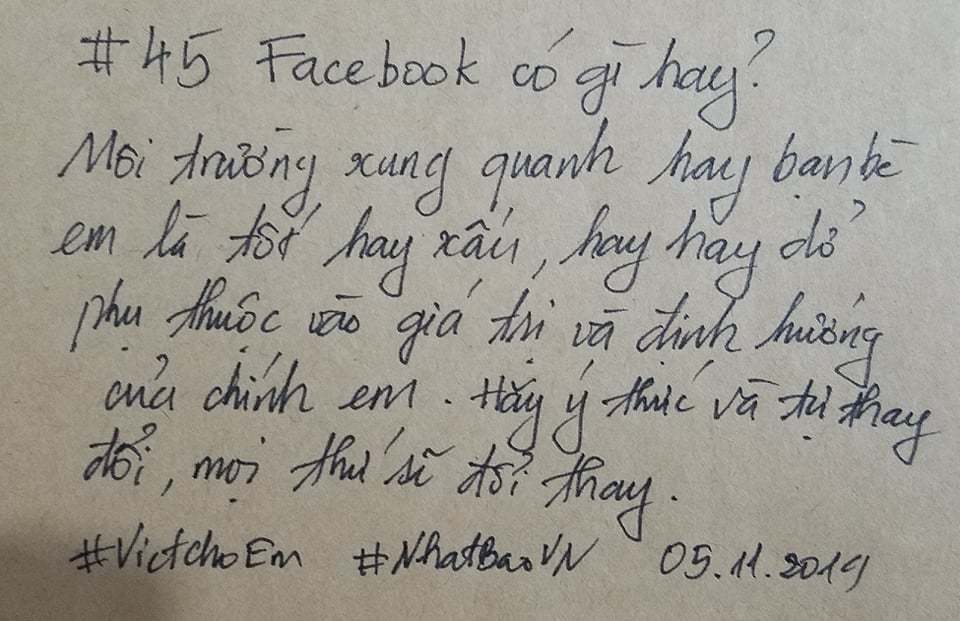 #45 Facebook có gì hay?
Môi trường xung quanh hay bạn bè
em là tốt hay xấu, hay hay dở
phụ thuộc vào giá trị và định hướng
của chính em. Hãy ý thức và tự thay
đổi, mọi thứ sẽ đổi thay.
#VietchoEm #NhatBaoVN 05.11.2019